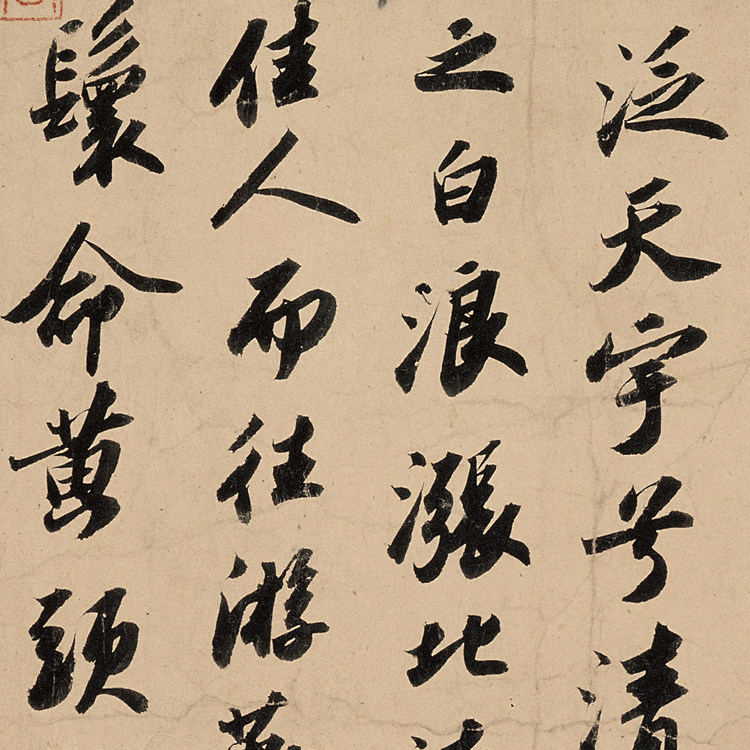 泛天宇兮清
之白浪漲北
佳人而往游
鬟命黃頭